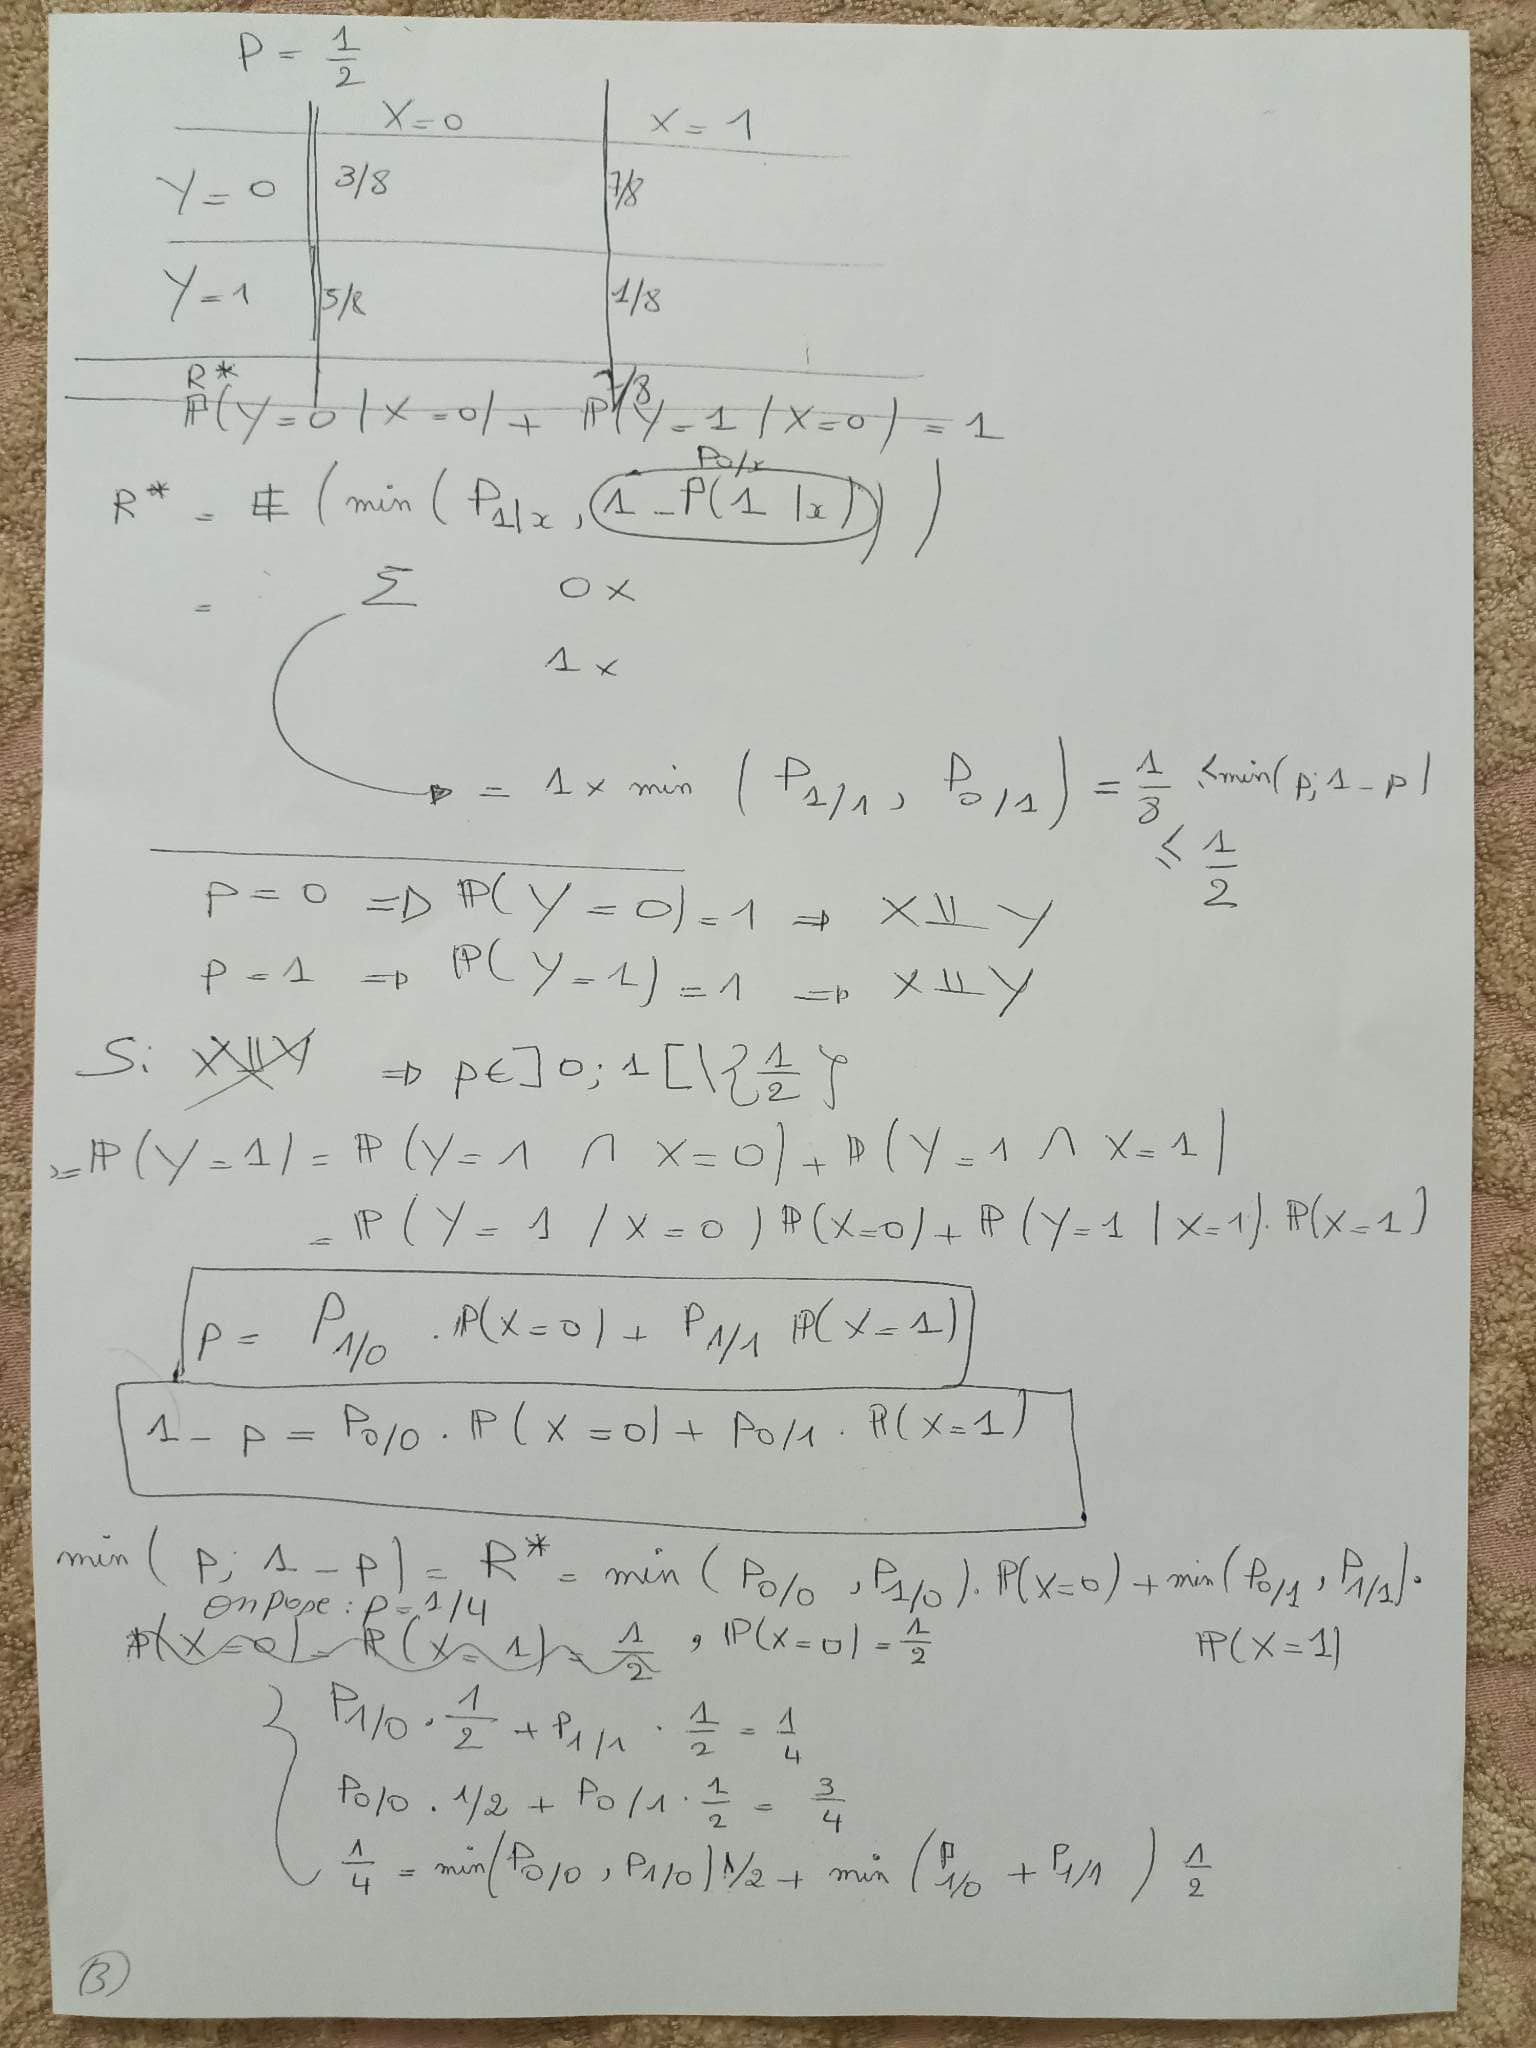 P = 1/2
X=0 X=1
Y=0 3/8 7/8
Y=1 5/8 1/8
R* 7/8
ℙ(Y=0 | X=0) + ℙ(Y=1 | X=0) = 1
P0/x
R* = 𝔼 (min (P1|x , 1 - P(1 |x)))
= Σ 0 x
1 x
= 1 x min (P1/1, P0/1) = 1/8 ≤ min(p; 1-p)
≤ 1/2
P=0 => ℙ(Y=0)=1 => X⫫Y
P=1 => ℙ(Y=1)=1 => X⫫Y
Si X⫫Y => p∈]0;1[\{1/2}
= ℙ(Y=1) = ℙ(Y=1 ∩ X=0) + ℙ(Y=1 ∩ X=1)
= ℙ(Y=1 / X=0) ℙ(X=0) + ℙ(Y=1 | X=1). ℙ(X=1)
P = P1/0 . ℙ(X=0) + P1/1 ℙ(X=1)
1 - p = P0/0 . ℙ(X=0) + P0/1 . ℙ(X=1)
min( P; 1-P) = R* = min(P0/0, P1/0). ℙ(X=0) + min(P0/1, P1/1).
on pose : P=1/4
ℙ(X=0) = ℙ(X=1) = 1/2 , ℙ(X=0) = 1/2 ℙ(X=1)
P1/0 . 1/2 + P1/1 . 1/2 = 1/4
P0/0 . 1/2 + P0/1 . 1/2 = 3/4
1/4 = min(P0/0, P1/0) 1/2 + min (P1/0 + P1/1) 1/2
3